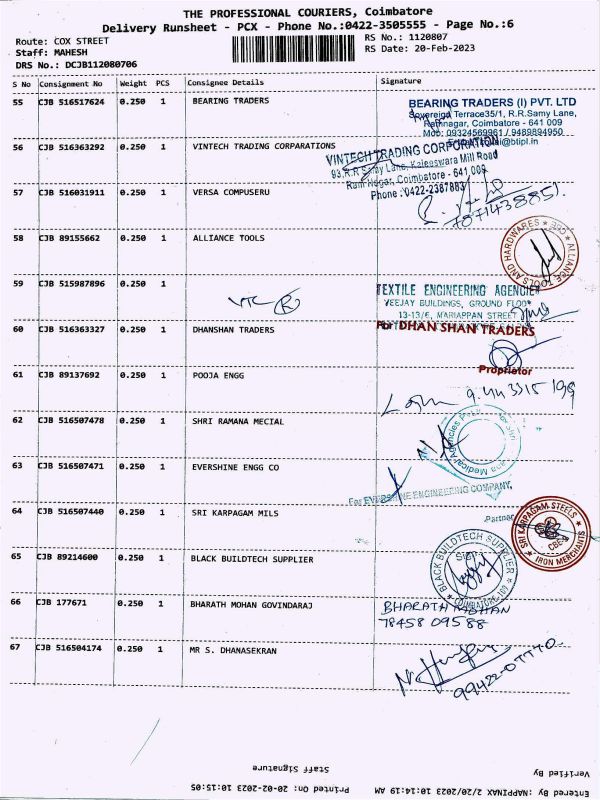 THE PROFESSIONAL COURIERS, Coimbatore
Delivery Runsheet - PCX - Phone No.:0422-3505555 - Page No.:6
Route: COX STREET
Staff: MAHESH
DRS No.: DCJB112080706
RS No.: 1120807
RS Date: 20-Feb-2023
S No Consignment No Weight PCS Consignee Details Signature
55 CJB 516517624 0.250 1 BEARING TRADERS
BEARING TRADERS (I) PVT. LTD
Sovereign Terrace35/1, R.R.Samy Lane,
Ramnagar, Coimbatore - 641 009
Mob: 09324569961 / 9489894950
@btipl.in
56 CJB 516363292 0.250 1 VINTECH TRADING CORPARATIONS
VINTECH TRADING CORPORATION
93, R.R Samy Lane, Kaleeswara Mill Road
Ram Nagar, Coimbatore - 641 009
Phone : 0422-2387883
57 CJB 516031911 0.250 1 VERSA COMPUSERU
7871438851
58 CJB 89155662 0.250 1 ALLIANCE TOOLS
ALLIANCE TOOLS AND HARDWARES
CBE
59 CJB 515987896 0.250 1
TEXTILE ENGINEERING AGENCIES
VEEJAY BUILDINGS, GROUND FLOOR
13-13/6, MARIAPPAN STREET
60 CJB 516363327 0.250 1 DHANSHAN TRADERS
For DHAN SHAN TRADERS
Proprietor
61 CJB 89137692 0.250 1 POOJA ENGG
62 CJB 516507478 0.250 1 SHRI RAMANA MECIAL
Medical Agencies
63 CJB 516507471 0.250 1 EVERSHINE ENGG CO
For EVERSHINE ENGINEERING COMPANY,
Partner
64 CJB 516507440 0.250 1 SRI KARPAGAM MILS
SRI KARPAGAM STEELS
CBE
IRON MERCHANTS
65 CJB 89214600 0.250 1 BLACK BUILDTECH SUPPLIER
BLACK BUILDTECH SUPPLIER
COIMBATORE
66 CJB 177671 0.250 1 BHARATH MOHAN GOVINDARAJ
BHARATH MOHAN
78458 09588
67 CJB 516504174 0.250 1 MR S. DHANASEKRAN
Staff Signature
Verified By
Printed On: 20-02-2023 10:15:05
Entered By :NAPPINAX 2/20/2023 10:14:19 AM